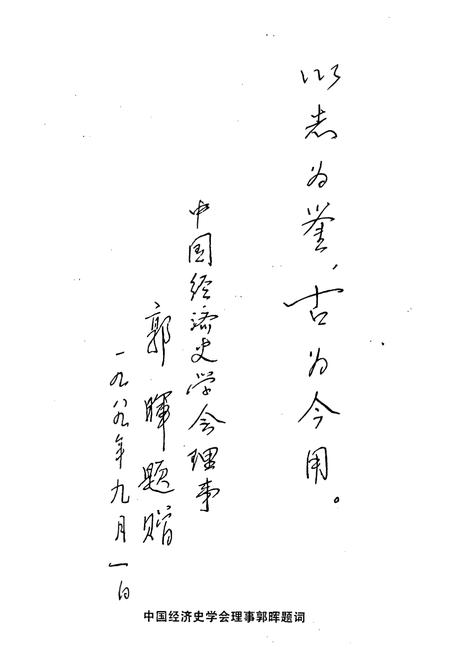 以志为鉴，古为今用。
中国经济史学会理事
郭晖题赠
一九八九年九月一日
中国经济史学会理事郭晖题词